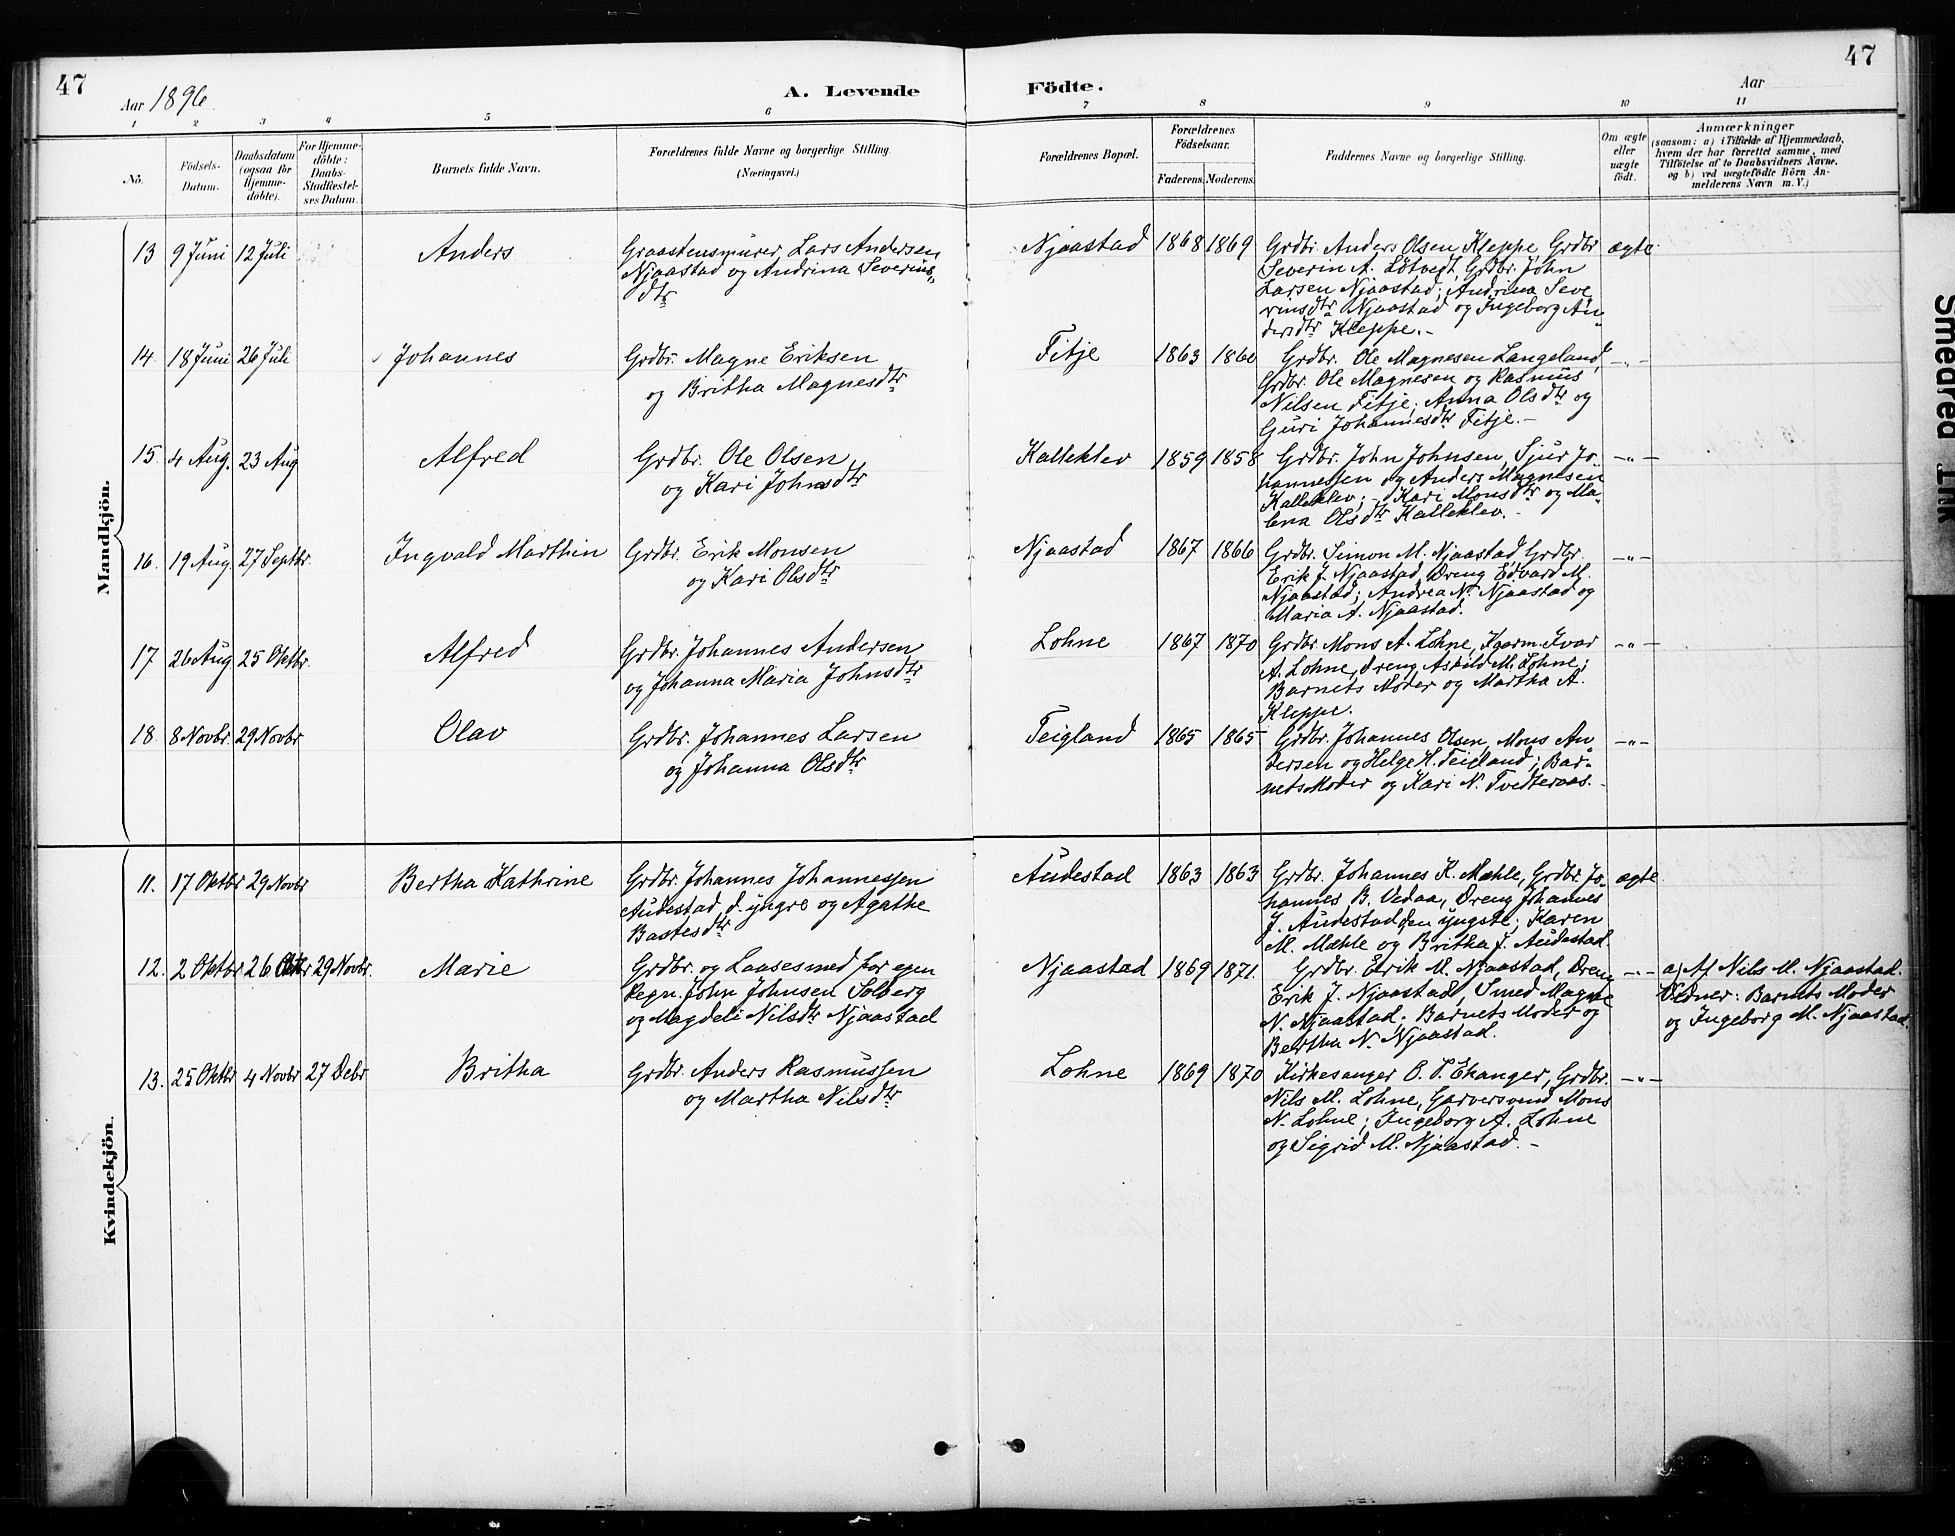 47
Aar 1896.
A. Levende
Födte.
Aar
47
1 2 3 4 5 6 7 8 9 10 11
No.
Födsels-
Datum.
Daabsdatum
(ogsaa för
Hjemme-
döbte).
For Hjemme-
döbte:
Daabs-
Stadfæstel-
ses Datum.
Barnets fulde Navn.
Forældrenes fulde Navne og borgerlige Stilling.
(Næringsvei.)
Forældrenes Bopæl.
Forældrenes
Födselsaar.
Faderens. Moderens.
Faddernes Navne og borgerlige Stilling.
Om ægte
eller
uægte
födt.
Anmærkninger
(saasom: a) i Tilfælde af Hjemmedaab,
hvem der har forrettet samme, med
Tilföielse af to Daabsvidners Navne,
og b) ved uægtefödte Börn An-
melderens Navn m. V.)
Mandkjön.
13 9 Juni 12 Juli Anders
Graastensmurer Lars Andersen
Njaastad og Andrina Severins
dtr
Njaastad 1868 1869
Grdbr. Anders Olsen Kleppe, Grdbr.
Severin A. Lötvedt, Grdbr. John
Larsen Njaastad; Andrina Seve
rinsdtr Njaastad og Ingeborg An-
dersdtr Kleppe.-
ægte
14. 18 Juni 26 Juli Johannes
Grdbr. Magne Eriksen
og Britha Magnesdtr
Fitje 1863 1860
Grdbr. Ole Magnesen Langeland,
Grdbr. Ole Magnesen og Rasmus
Nilsen Fitje; Anna Olsdtr og
Guri Johannesdtr Fitje.-
-"-
15. 4 Aug. 23 Aug Alfred
Grdbr. Ole Olsen
og Kari Johnsdtr
Kalleklev 1859 1858
Grdbr. John Johnsen, Sjur Jo-
hannessen og Anders Magnesen
Kalleklev; - Kari Monsdtr og Ma-
lena Olsdtr Kalleklev.-
-"-
16. 19 Aug. 27 Septbr. Ingvald Marthin
Grdbr. Erik Monsen
og Kari Olsdtr
Njaastad 1867 1866
Grdbr. Simon M. Njaastad Grdbr.
Erik J. Njaastad, Dreng Edvard M.
Njaastad; Andrea N. Njaastad og
Maria A. Njaastad.
-"-
17 26 Aug 25 Oktbr. Alfred
Grdbr. Johannes Andersen
og Johanna Maria Johnsdtr
Lohne 1867 1870
Grdbr. Mons A. Lohne, Kaarm. Ivar
A. Lohne, Dreng Askild M. Lohne;
Barnets Moder og Martha A.
Kleppe.
-"-
18. 8 Novbr. 29 Novbr Olav
Grdbr. Johannes Larsen
og Johanna Olsdtr
Teigland 1865 1865
Grdbr. Johannes Olsen, Mons An-
dersen og Helge H. Teigland; Bar-
nets Moder og Kari N. Tvedteraas.-
-"-
Kvindekjön.
11. 17 Oktbr 29 Novbr Bertha Kathrine
Grdbr. Johannes Johannessen
Audestad d. yngre og Agathe
Bastesdtr
Audestad 1863 1863
Grdbr. Johannes K. Mæhle, Grdbr. Jo-
hannes B. Vedaa, Dreng Johannes
J. Audestad den yngste; Karen
M. Mæhle og Britha J. Audestad.
ægte.
12. 2 Oktbr 26 Oktbr 29 Novbr. Marie
Grdbr. og Laasesmed for egen
Regn. John Johnsen Solberg
og Magdeli Nilsdtr Njaastad
Njaastad 1869 1871.
Grdbr. Erik M. Njaastad, Dreng
Erik J. Njaastad, Smed Magne
N. Njaastad. Barnets Moder og
Bertha N. Njaastad.
-"-
a) Af Nils M. Njaastad.
Vidner: Barnets Moder
og Ingeborg M. Njaastad.
13. 25 Oktbr 4 Novbr 27 Debr Britha
Grdbr. Anders Rasmussen
og Martha Nilsdtr
Lohne 1869 1870
Kirkesanger O. S. Ekanger, Grdbr.
Nils M. Lohne, Garversvend Mons
N. Lohne; Ingeborg A. Lohne
og Sigrid M. Njaastad.-
-"-